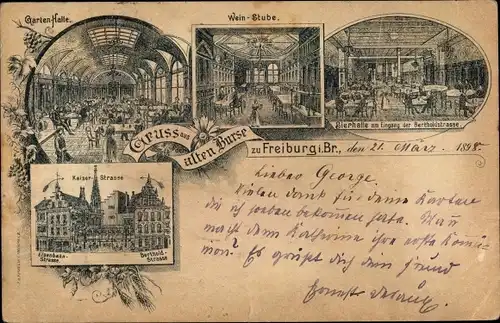 Garten-Halle.
Wein-Stube.
Bierhalle am Eingang der Bertholdstrasse.
Gruss aus
alten Burse
zu Freiburg i. Br., den 21. März. 1898.
Kaiser-Strasse
Eisenbahn-
Strasse
Berthold-
Strasse
Lieber George.
Vielen Dank für deine Karten
die ich soeben bekommen habe. Wann
macht denn Katherine ihre erste Kommu-
nion? Es grüßt dich dein Freund